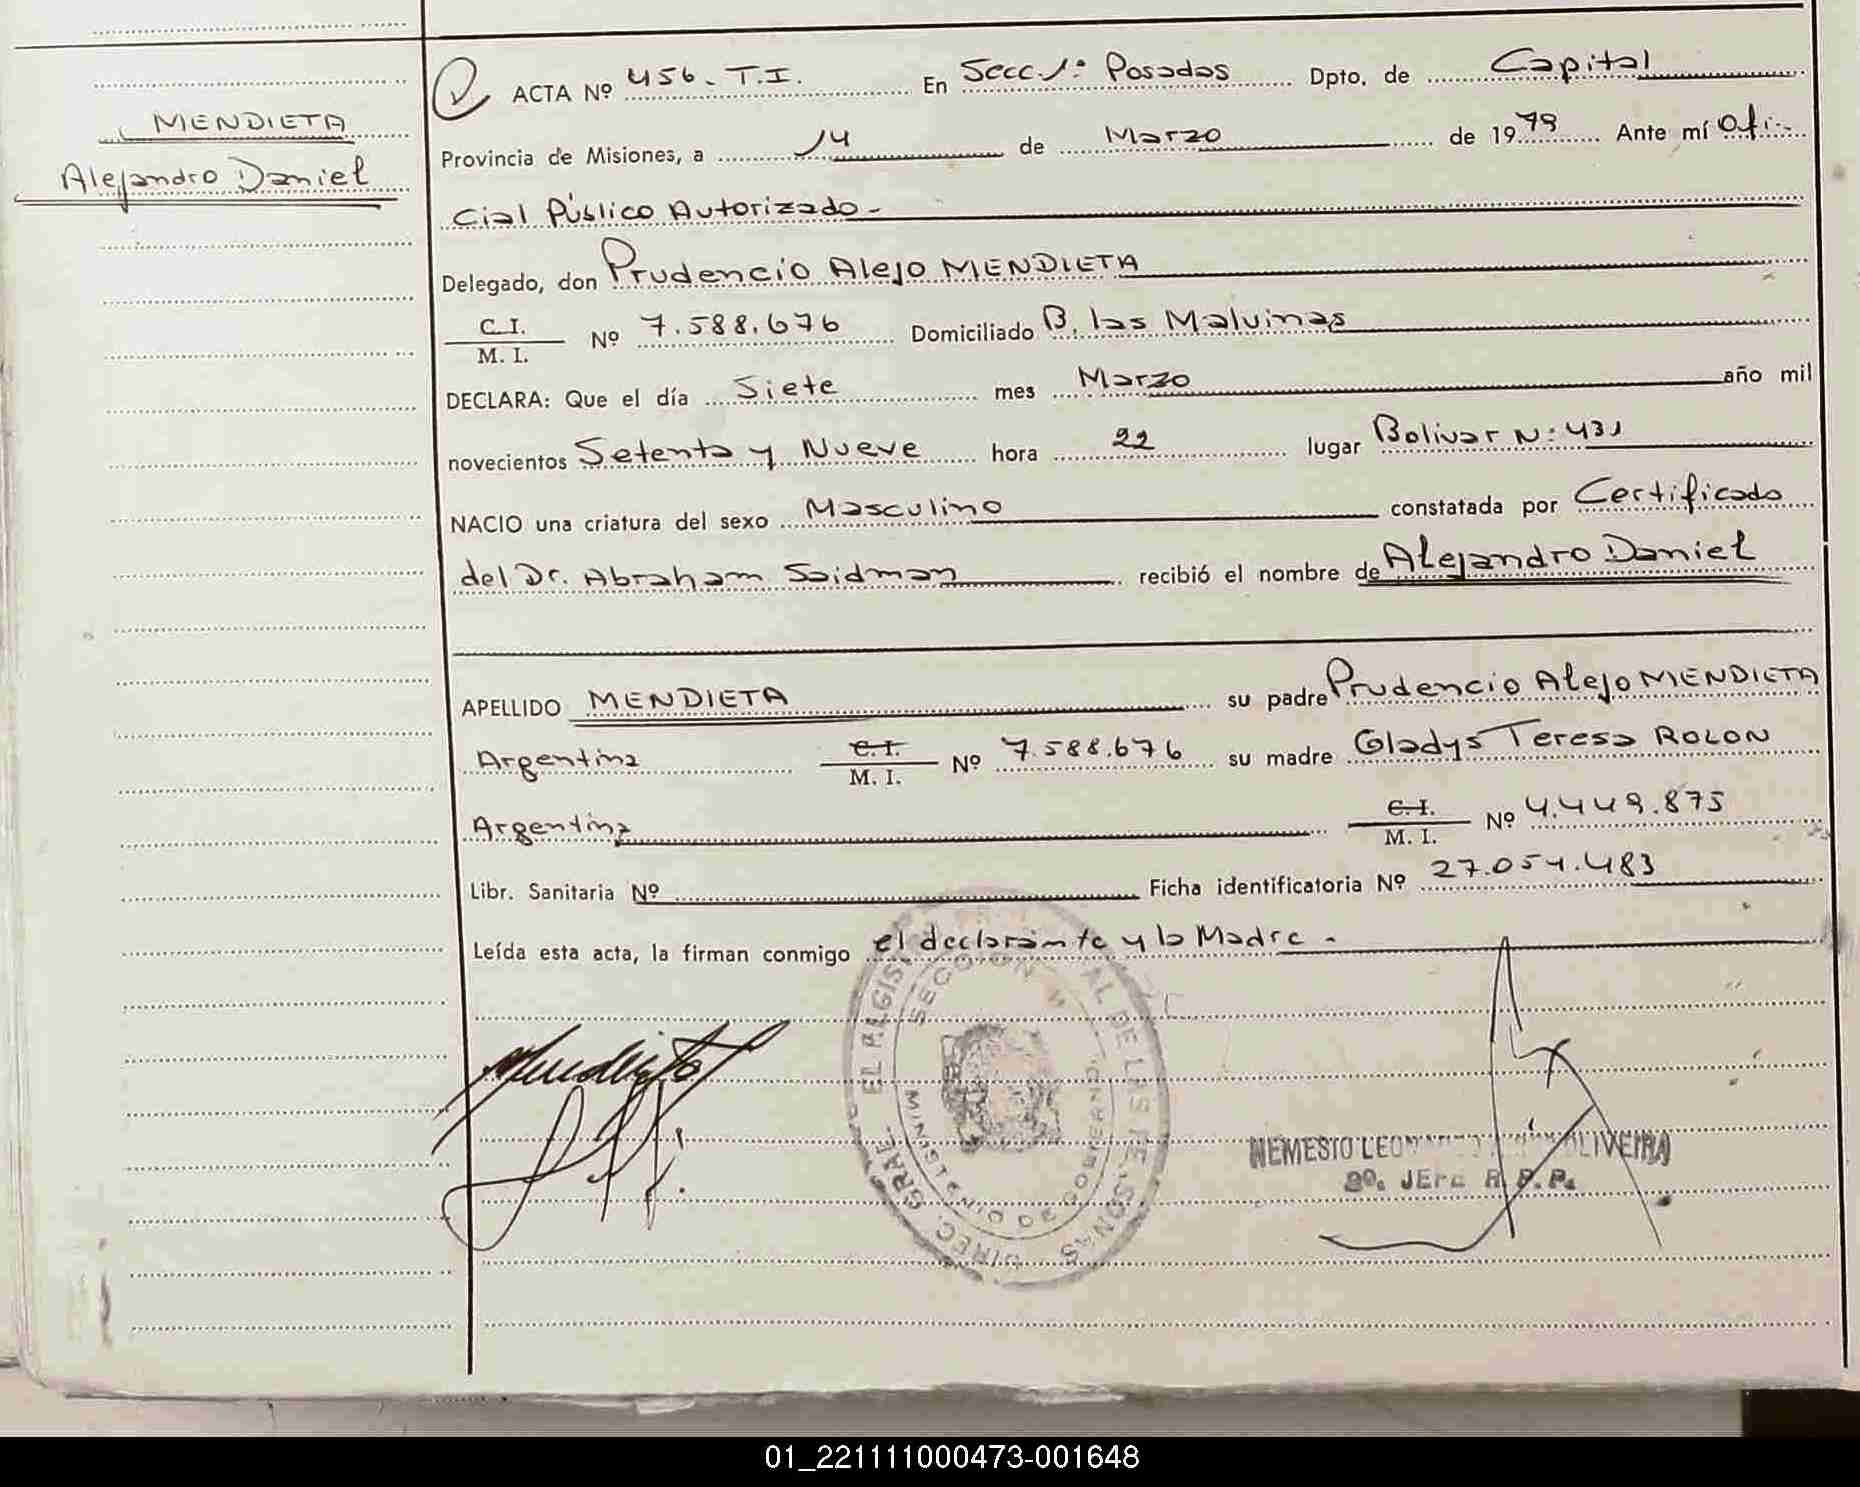 MENDIETA
Alejandro Daniel
ACTA Nº 456 - T.I. En Secc. 1º Posadas Dpto. de Capital
Provincia de Misiones, a 14 de Marzo de 1979 Ante mí Ofi-
cial Público Autorizado -
Delegado, don Prudencio Alejo MENDIETA
C. I.
M. I. Nº 7.588.676 Domiciliado B. las Malvinas
DECLARA: Que el día Siete mes Marzo año mil
novecientos Setenta y Nueve hora 22 lugar Bolivar N: 431
NACIO una criatura del sexo Masculino constatada por Certificado
del Dr. Abraham Saidman recibió el nombre de Alejandro Daniel
APELLIDO MENDIETA su padre Prudencio Alejo MENDIETA
Argentina C. I. M. I. Nº 7.588.676 su madre Gladys Teresa ROLON
Argentina C. I. M. I. Nº 4.449.875
Libr. Sanitaria Nº Ficha identificatoria Nº 27.054.483
Leída esta acta, la firman conmigo el declarante y la Madre -
Mendieta
DIREC. GRAL. DE LAS PERSONAS
SECCION
MINISTERIO DE GOBIERNO
NEMESIO OLIVEIRA
01_221111000473-001648